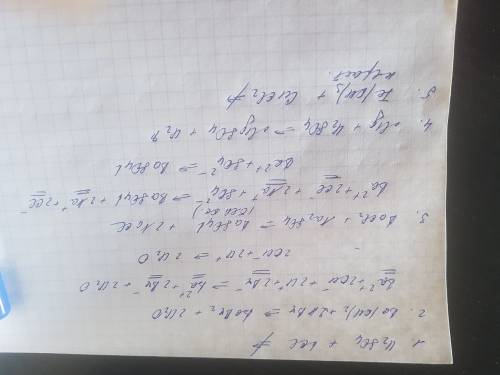 1. H₂SO₄ + HCl ⇏
2. Ba(OH)₂ + 2HBr ⇒ BaBr₂ + 2H₂O
Ba²⁺ + 2OH⁻ + 2H⁺ + 2Br⁻ ⇒ Ba²⁺ + 2Br⁻ + 2H₂O
2OH⁻ + 2H⁺ ⇒ 2H₂O
3. BaCl₂ + Na₂SO₄ ⇒ BaSO₄↓ + 2NaCl
Ba²⁺ + 2Cl⁻ + 2Na⁺ + SO₄²⁻ ⇒ BaSO₄↓ + 2Na⁺ + 2Cl⁻
Ba²⁺ + SO₄²⁻ ⇒ BaSO₄↓
4. Mg + H₂SO₄ ⇒ MgSO₄ + H₂↑
5. Fe(OH)₃ + CuCl₂ ⇏